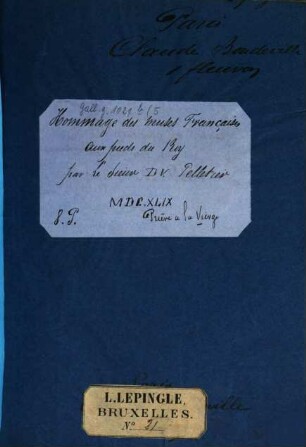 Paris
Claude Bouderville
Gall. g. 1021 b/5
Hommage des muses Françaises
aux pieds du Roy
par le Sieur DU Pelletier
MDC.XLIX
8. P. Prière a la Vierge
L. LEPINGLE,
BRUXELLES.
Nº 21